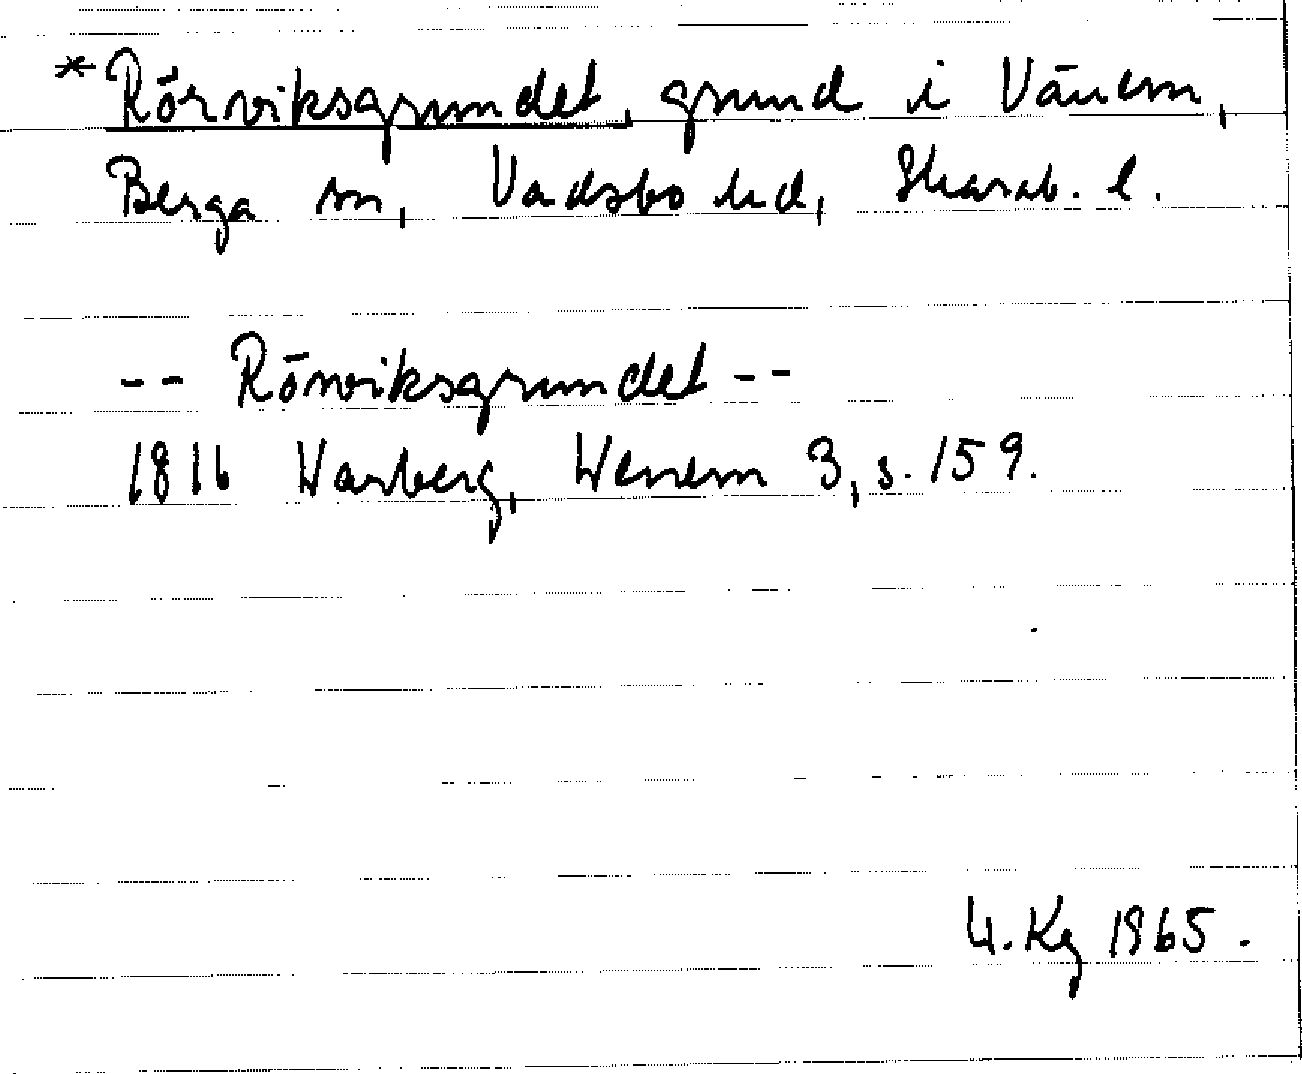 * Rörviksgrundet, grund i Vänern,
Berga sn, Vadsbo hd, Skarab. l.
-- Rörviksgrundet --
1816 Warberg, Wenern 3, s. 159.
U. Kg 1965.